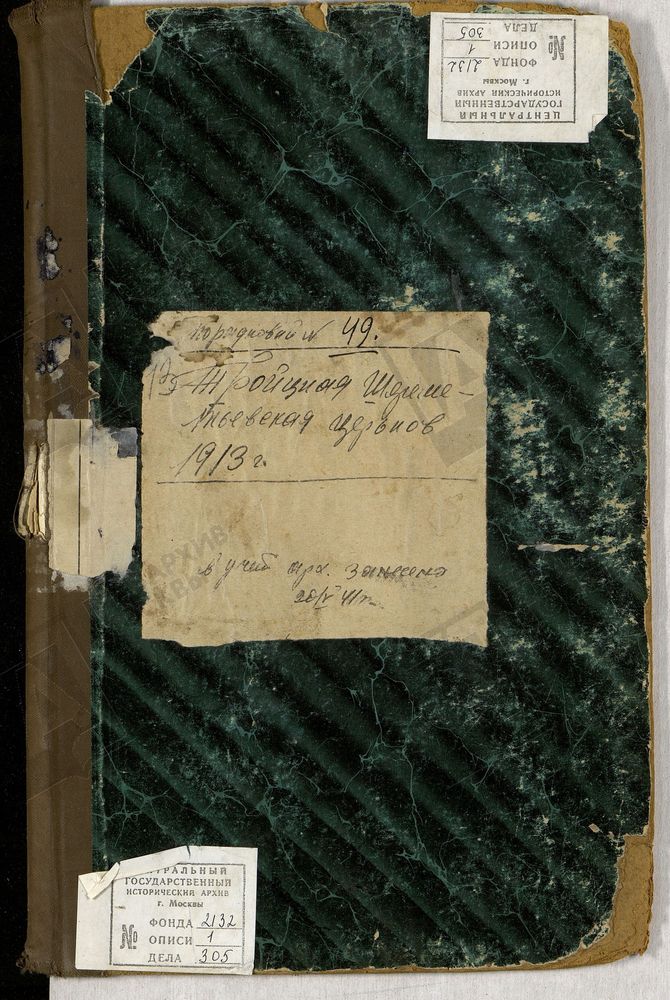 ЦЕНТРАЛЬНЫЙ
ГОСУДАРСТВЕННЫЙ
ИСТОРИЧЕСКИЙ АРХИВ
г. Москвы
№
ФОНДА 2132
ОПИСИ 1
ДЕЛА 305
Порядковый № 49.
Тройцкая Шереме-
тьевская церьков
1913 г.
в учет арх. занесено
20/V 41 г.
ТРАЛЬНЫЙ
ГОСУДАРСТВЕННЫЙ
ИСТОРИЧЕСКИЙ АРХИВ
г. Москвы
№
ФОНДА 2132
ОПИСИ 1
ДЕЛА 305